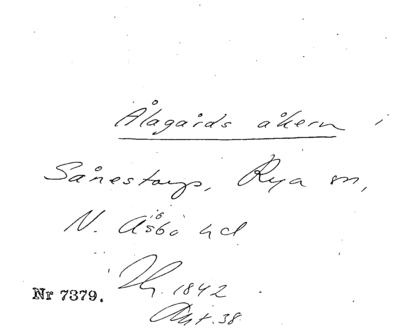 Ålagårds åkern i
Sånestorp, Rya sn,
N. Åsbo hd
Nr 7379. Th. 1842
Akt. 38.